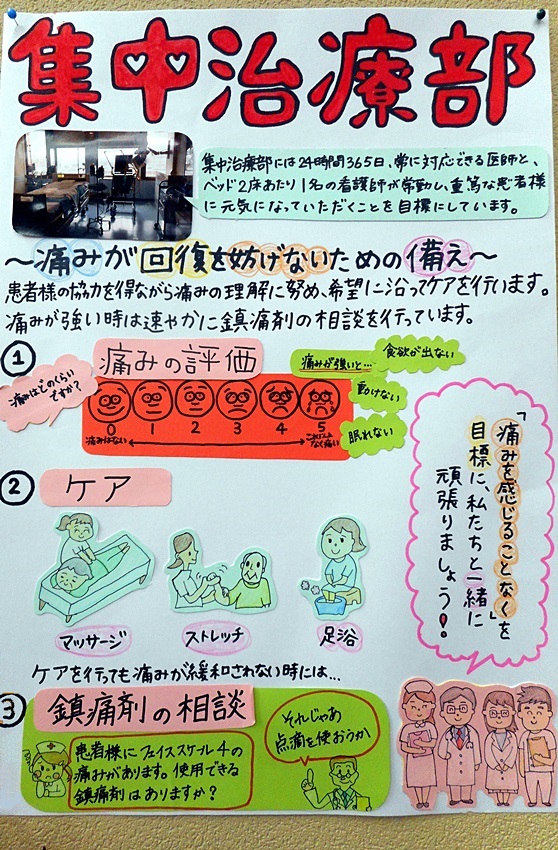 集中治療部
集中治療部には24時間365日、常に対応できる医師と、
ベッド2床あたり1名の看護師が常勤し、重篤な患者様
に元気になっていただくことを目標にしています。
～痛みが回復を妨げないための備え～
患者様の協力を得ながら痛みの理解に努め、希望に沿ってケアを行います。
痛みが強い時は速やかに鎮痛剤の相談を行っています。
① 痛みの評価
痛みはどのくらい
ですか?
0 1 2 3 4 5
痛みはない
これ以上
なく痛い
痛みが強いと…
食欲が出ない
動けない
眠れない
「痛みを感じることなく」を
目標に、私たちと一緒に
頑張りましょう!
② ケア
マッサージ
ストレッチ
足浴
ケアを行っても痛みが緩和されない時には…
③ 鎮痛剤の相談
患者様にフェイススケール4の
痛みがあります。使用できる
鎮痛剤はありますか?
それじゃあ
点滴を使おうか